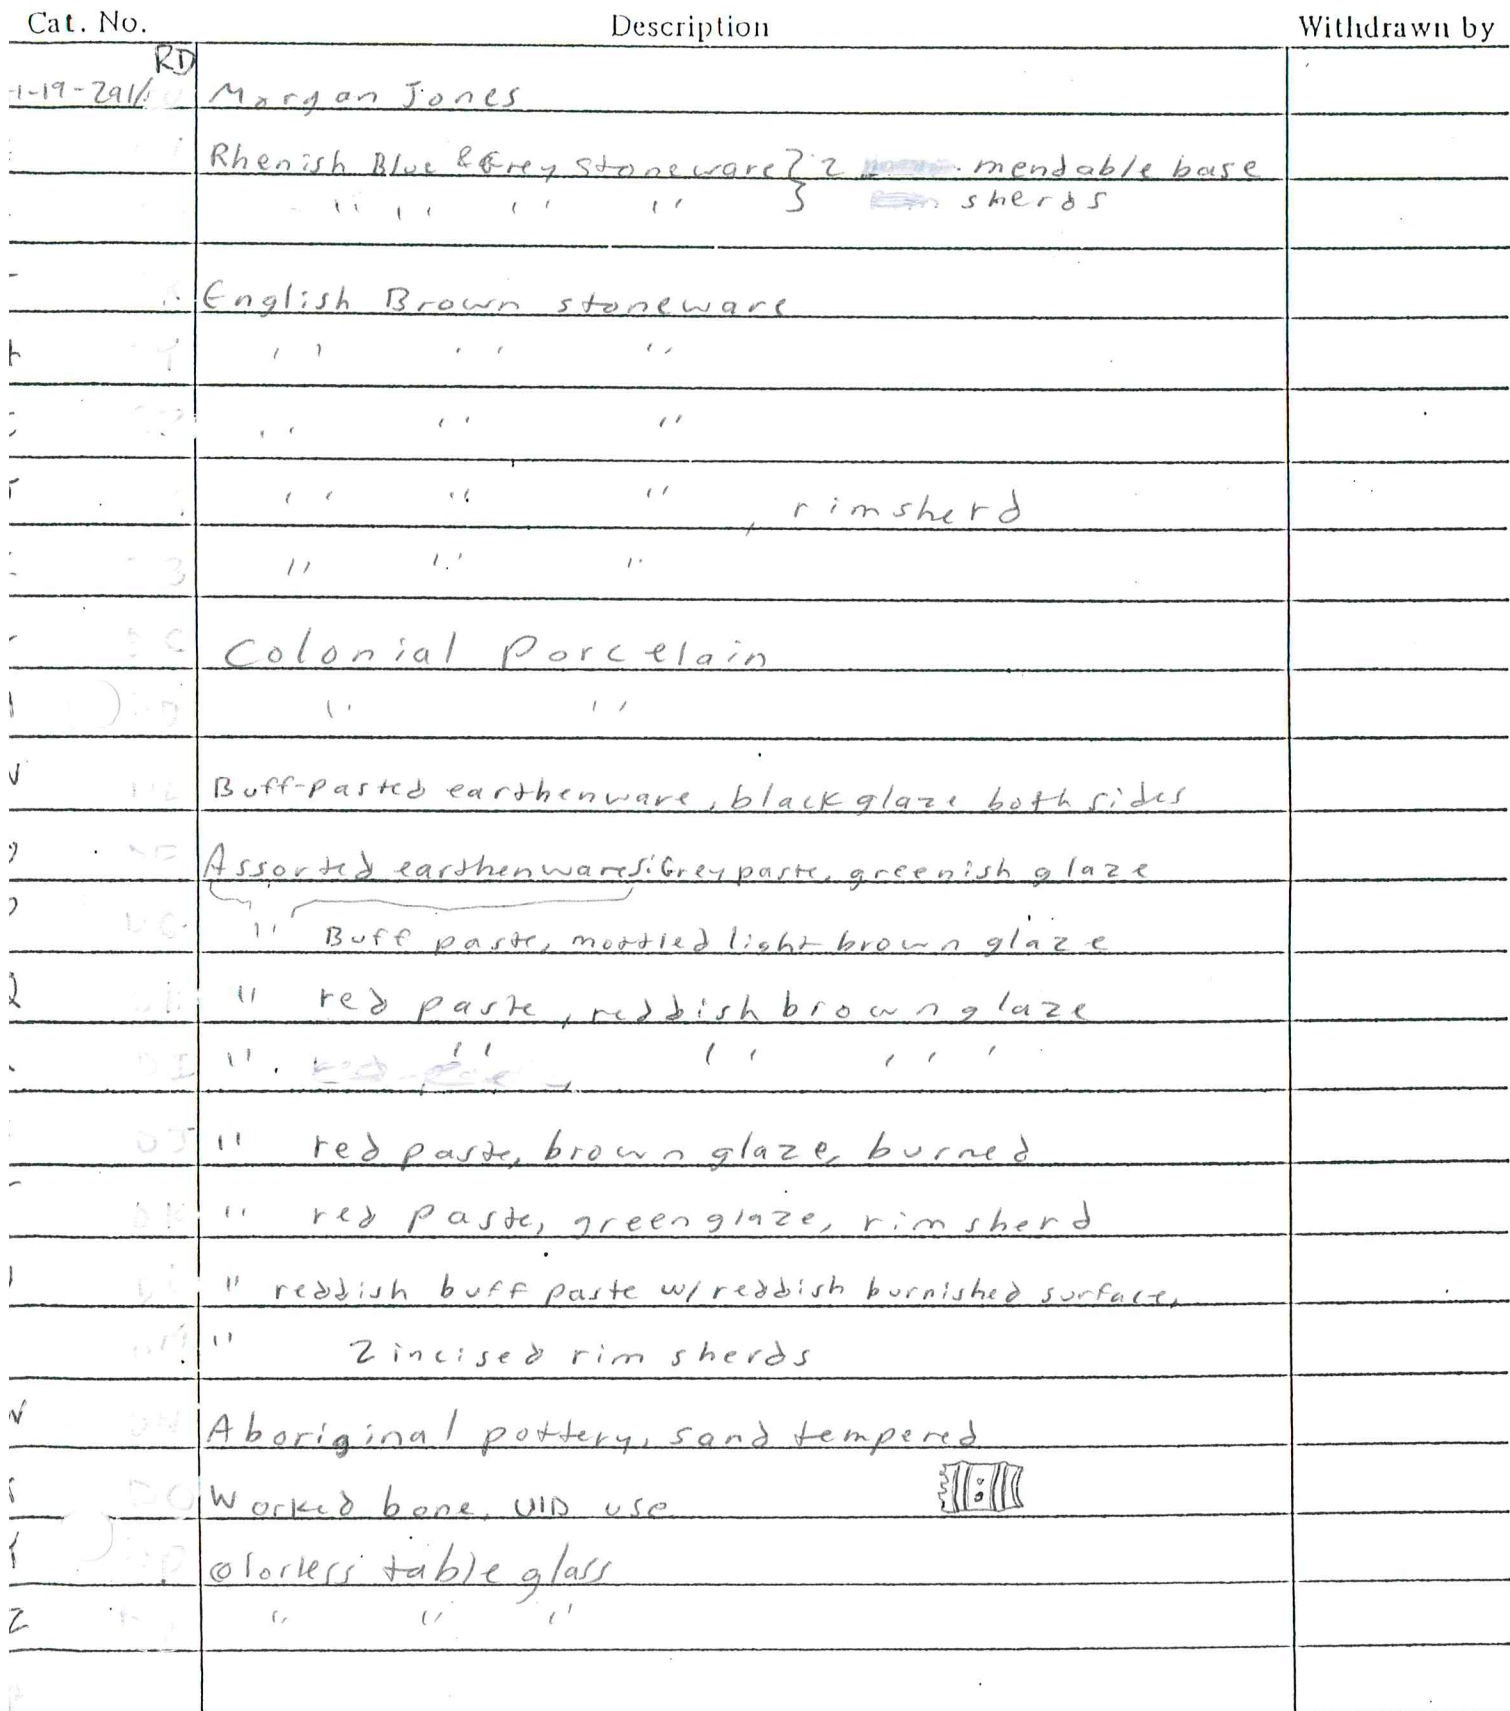 Cat. No. Description Withdrawn by
RD
Morgan Jones
Rhenish Blue & Grey Stoneware } 2 mendable base
" " " " } sherds
English Brown stoneware
" " "
" " "
" " " , rimsherd
" " "
Colonial Porcelain
" "
N Buff-pasted earthenware, black glaze both sides
Assorted earthenwares: Grey paste, greenish glaze
" Buff paste, mottled light brown glaze
" red paste, reddish brown glaze
" " " " "
" red paste, brown glaze, burned
" red paste, green glaze, rim sherd
" reddish buff paste w/ reddish burnished surface,
" 2 incised rim sherds
Aboriginal pottery, sand tempered
Worked bone, UID use
colorless table glass
Z " " "